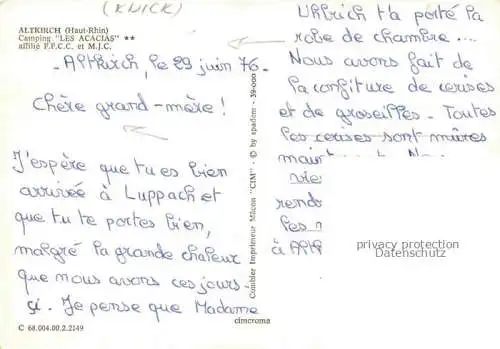 (KNICK)
ALTKIRCH (Haut-Rhin)
Camping "LES ACACIAS" **
affilié F.F.C.C. et M.J.C.
Altkirch, le 29 juin 76.
Chère grand-mère !
J'espère que tu es bien
arrivée à Luppach et
que tu te portes bien,
malgré la grande chaleur
que nous avons ces jours-
çi. Je pense que Madame
C 68.004.00.2.2149
Combier Imprimeur Mâcon "CIM" - © by spadem - 39.000
cimcroma
Uhlrich t'a porté la
robe de chambre ...
Nous avons fait de
la confiture de cerises
et de groseilles. Toutes
les cerises sont mûres
rend
les
à Altk
privacy protection
Datenschutz